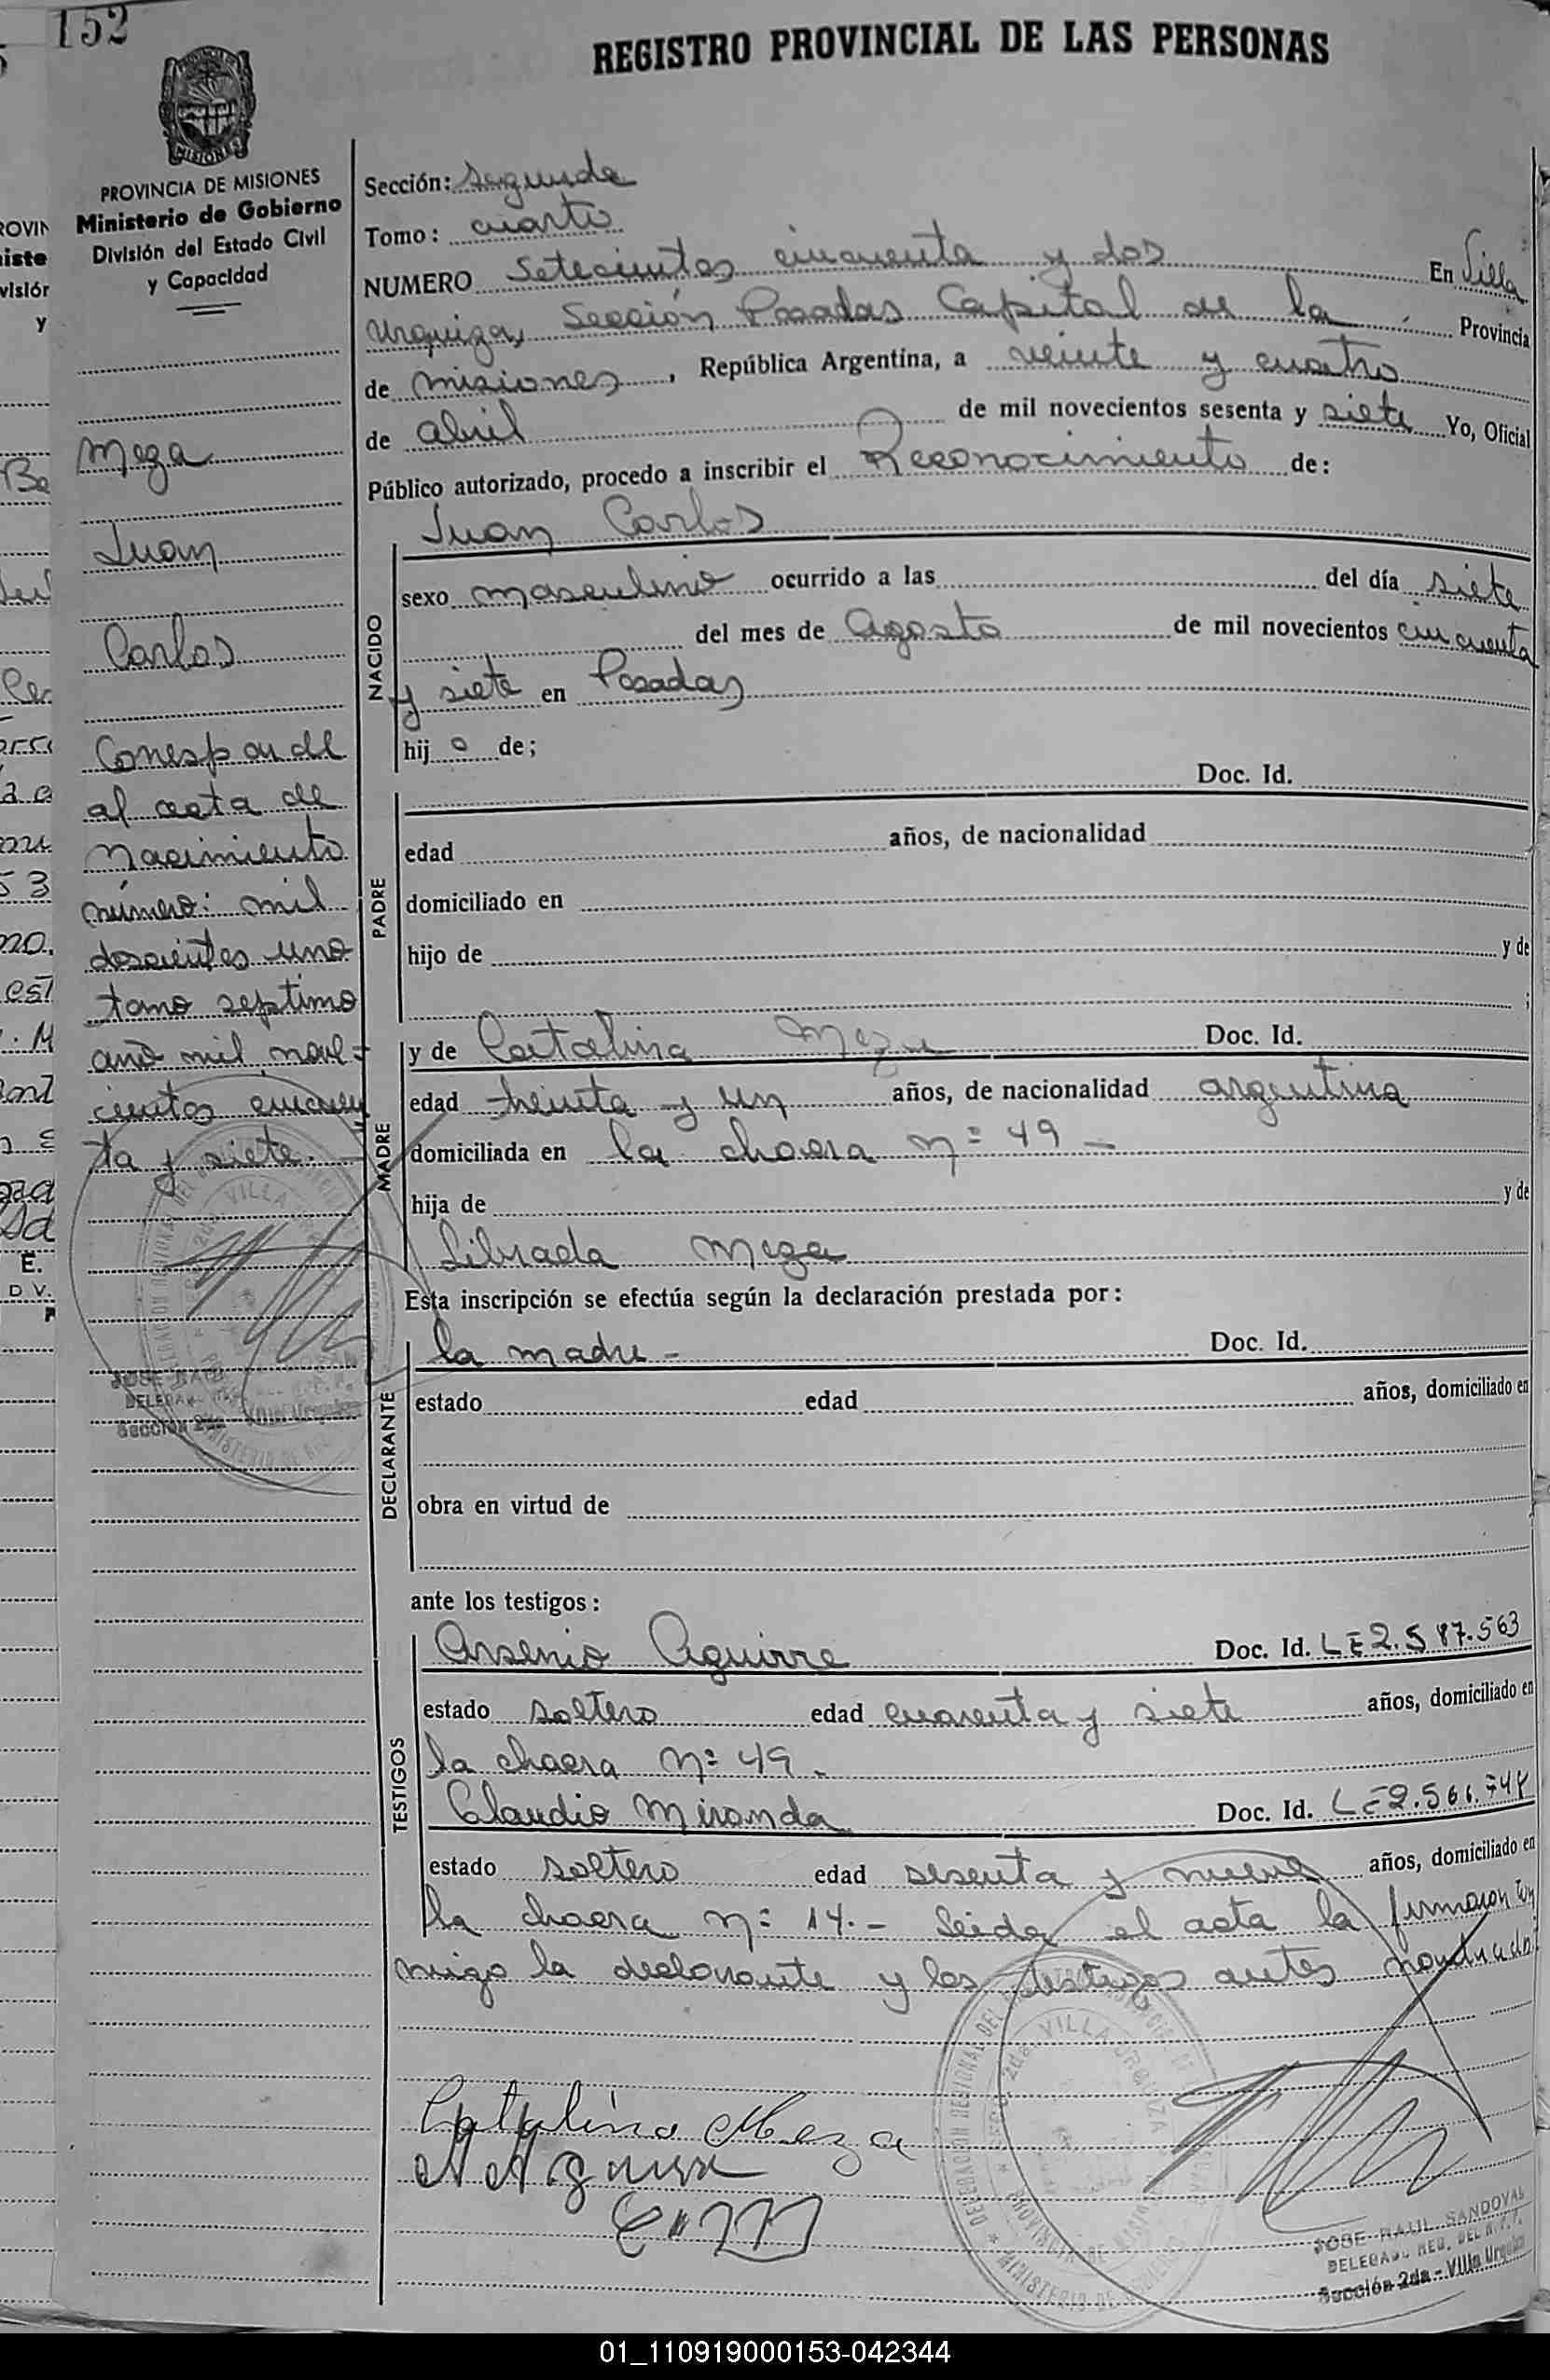 152
REGISTRO PROVINCIAL DE LAS PERSONAS
MISIONES
PROVINCIA DE MISIONES
Ministerio de Gobierno
División del Estado Civil
y Capacidad
Meza
Juan
Carlos
Corresponde
al acta de
Nacimiento
número: mil
doscientos uno
tomo septimo
año mil nove-
cientos cincuen
ta y siete.
Sección: Segunda
Tomo: cuarto
NUMERO Setecientos cincuenta y dos En Villa
Urquiza, Sección Posadas Capital de la Provincia
de Misiones, República Argentina, a veinte y cuatro
de abril de mil novecientos sesenta y siete Yo, Oficial
Público autorizado, procedo a inscribir el Reconocimiento de:
Juan Carlos
NACIDO
sexo masculino ocurrido a las del día siete
del mes de Agosto de mil novecientos cincuenta
y siete en Posadas
hij o de;
Doc. Id.
PADRE
edad años, de nacionalidad
domiciliado en
hijo de y de
;
MADRE
y de Catalina Meza Doc. Id.
edad treinta y un años, de nacionalidad argentina
domiciliada en la chacra Nº 49 —
hija de y de
Librada Meza
Esta inscripción se efectúa según la declaración prestada por:
DECLARANTE
la madre - Doc. Id.
estado edad años, domiciliado en
obra en virtud de
ante los testigos:
TESTIGOS
Arsenio Aguirre Doc. Id. LE 2.587.563
estado soltero edad cuarenta y siete años, domiciliado en
la chacra Nº 49.
Claudio Miranda Doc. Id. LE 2.566.744
estado soltero edad sesenta y nueve años, domiciliado en
la chacra Nº 14.- Leida el acta la firmaron con
migo la declarante y los testigos antes
Catalina Meza
A Aguirre
C. M
JOSE RAUL SANDOVAL
DELEGADO REG. DEL R.P.P.
Sección 2da - Villa Urquiza
01_110919000153-042344